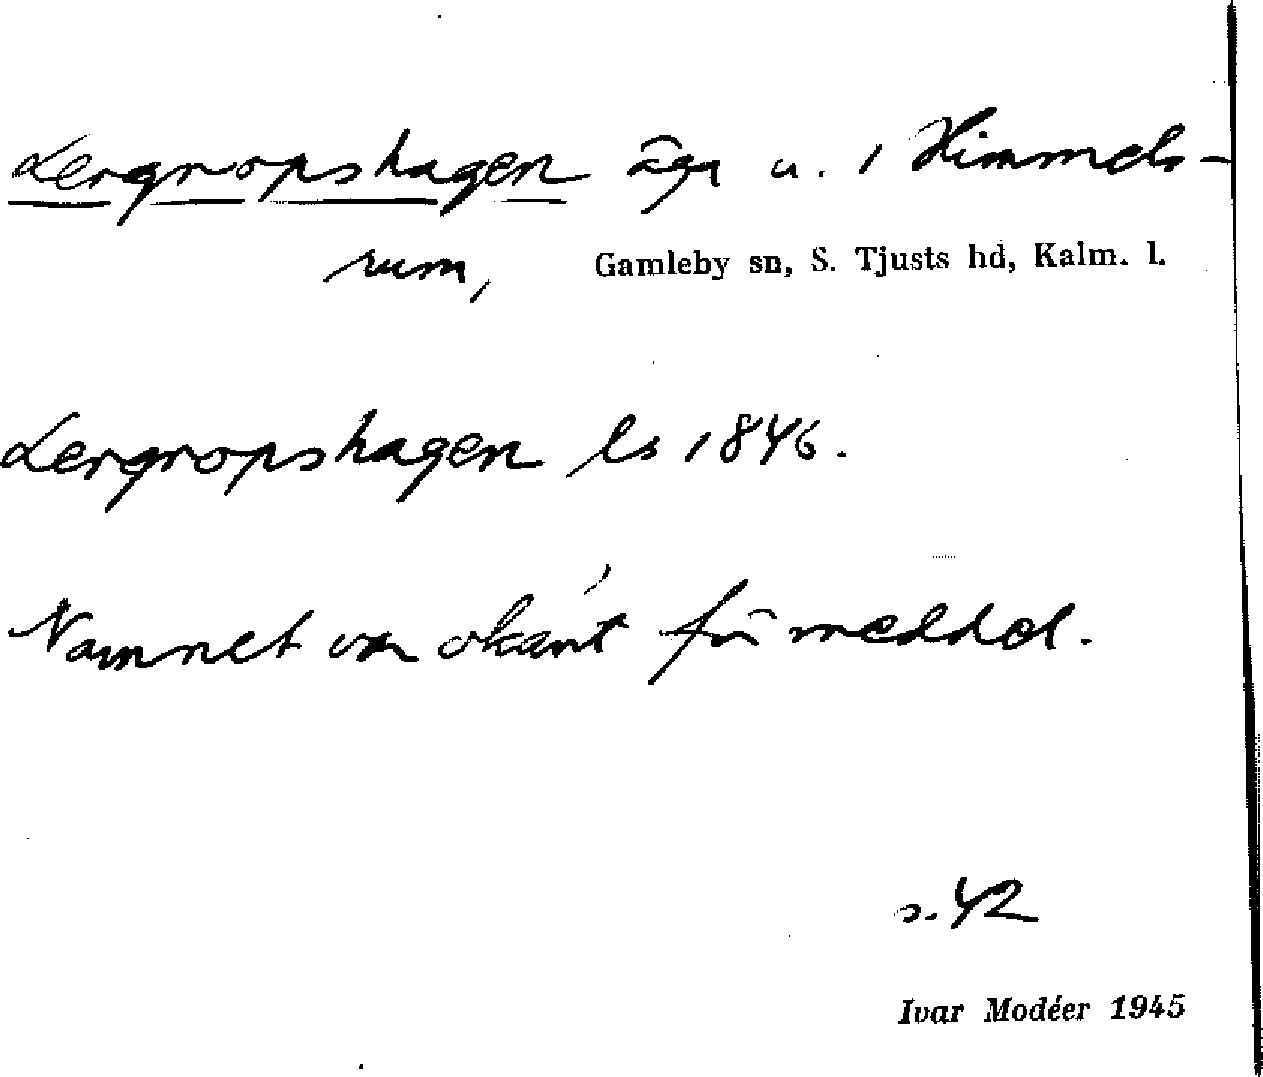 Lergropshagen äga u. i Himmels-
rum, Gamleby sn, S. Tjusts hd, Kalm. l.
Lergropshagen ls 1846.
Namnet var okänt för meddel.
s. 42
Ivar Modéer 1945